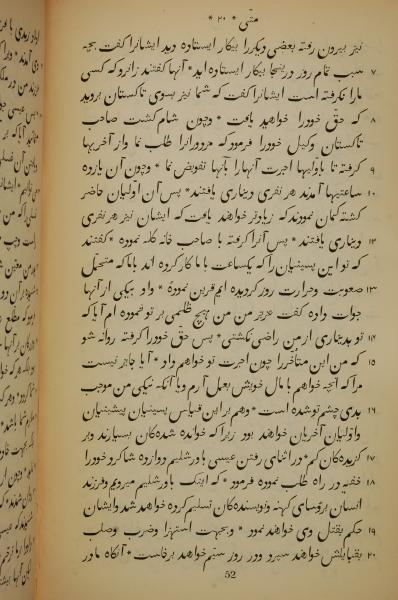 متی * ۲۰ *
نیز بیرون رفته بعضی دیگررا بیکار ایستاده دید ایشانرا گفت بچه
۷ سبب تمام روز در اینجا بیکار ایستاده اید * آنها گفتند زانرو که کسی
مارا نگرفته است ایشانرا گفت که شما نیز بسوی تاکستان بروید
۸ که حق خودرا خواهید یافت * وچون شام گشت صاحب
تاکستان وکیل خودرا فرمود که مزدورانرا طلب نما واز آخریها
۹ گرفته تا باولیها اجرت آنهارا بآنها تفویض نما * وچون آن یازده
۱۰ ساعتیها آمدند هر نفری دیناری یافتند * پس آن اولیان حاضر
گشته گمان نمودند که زیادتر خواهند یافت که ایشان نیز هر نفری
۱۲ دیناری یافتند * پس آنرا گرفته با صاحب خانه گله نموده * گفتند
که تو این پسینیان را که یکساعت با ما کار کرده اند باما که متحمل
۱۳ صعوبت وحرارت روز گردیده ایم قرین نمودۀ * واو بیکی از آنها
جواب داده گفت عزیز من من هیچ ظلمی بر تو ننموده ام آیا که
۱۴ تو بدیناری از من راضی نگشتی * پس حق خودرا گرفته روانه شو
۱۵ که من این متأخررا چون اجرت تو خواهم داد * آیا جایز نیست
مرا که آنچه خواهم با مال خویش بعمل آرم ویا آنکه نیکی من موجب
۱۶ بدی چشم تو شده است * وهم بر این قیاس پسینیان پیشینیان
واولیان آخریان خواهند بود زیرا که خوانده شده‌کان بسیارند وبر
۱۷ گزیده‌کان کم * در اثنای رفتن عیسی باورشلیم دوازده شاگرد خودرا
۱۸ خفیه در راه طلب نموده فرمود * که اینک باورشلیم میرویم وفرزند
انسان برؤسای کهنه ونویسنده‌کان تسلیم کرده خواهد شد وایشان
۱۹ حکم بقتل وی خواهند نمود * وبجهت استهزا وضرب وصلب
۲۰ بقبایلش خواهند سپرد ودر روز سیّم خواهد برخاست * آنگاه مادر
52